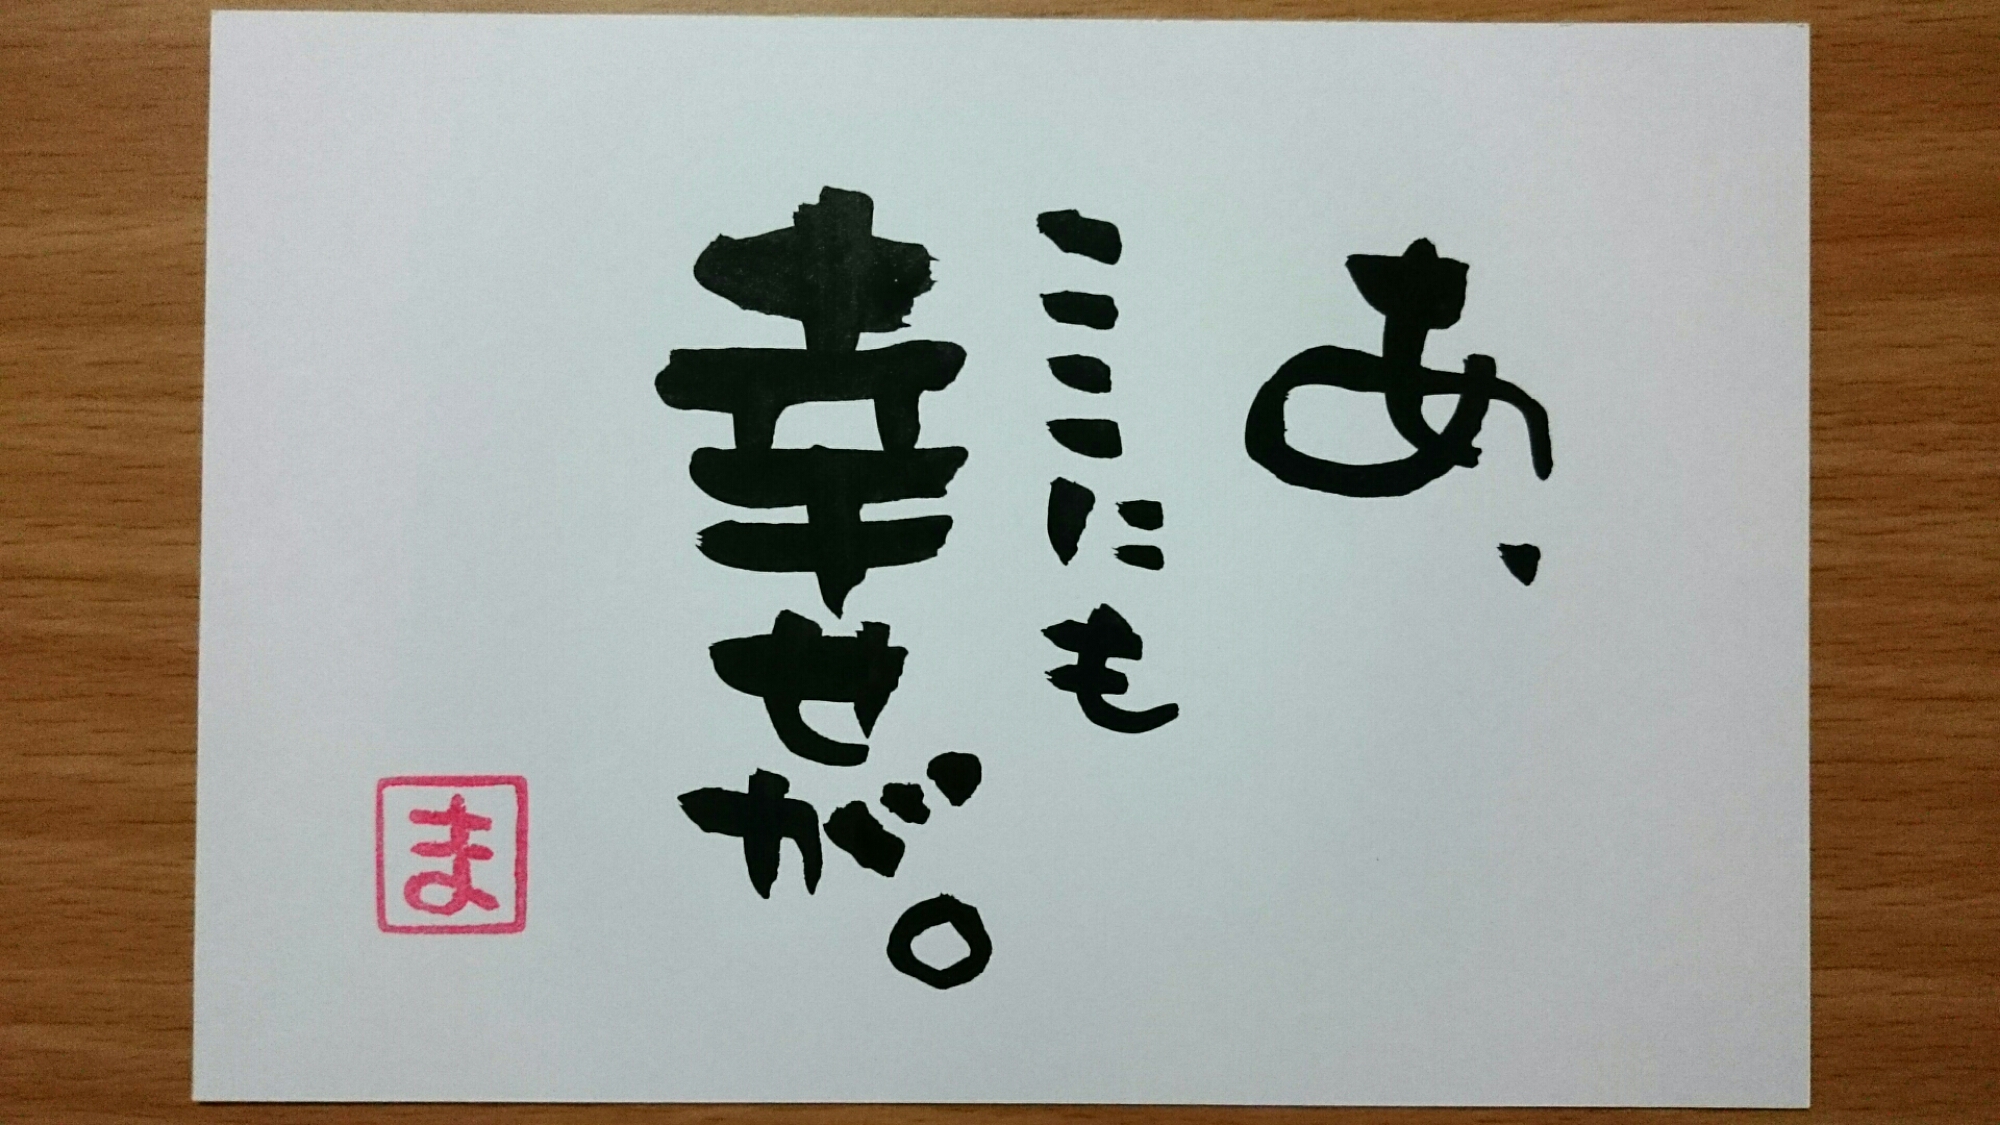 あ、
ここにも
幸せが。
ま